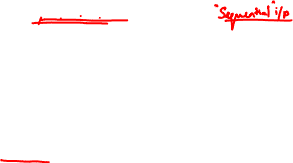 "Sequential" i/p